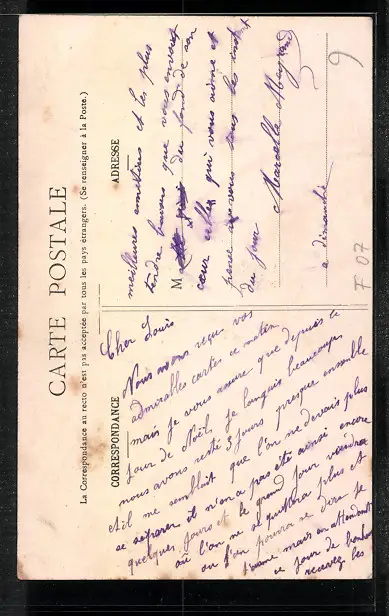 CARTE POSTALE
La Correspondance au recto n'est pas acceptée par tous les pays étrangers. (Se renseigner à la Poste.)
CORRESPONDANCE
Cher Louis
Nous avons reçu vos
admirables cartes ce matin
mais je vous assure que depuis le
jour de Noël je languis beaucoup
nous avons resté 3 jours presque ensemble
et il me semblait que l'on ne devais plus
se séparer il n'en a pas été ainsi encore
quelques jours et le grand jour viendra
où l'on ne se quittera plus et
où l'on pourra se dire je
t'aime mais en attendant
ce jour de bonheur
recevez les
ADRESSE
meilleures amitiées et les plus
tendre baisers que vous envoie
M du fond de son
cœur celle qui vous aime et
pense à vous tous les inst
du jour
Marcelle
a dimanche
9
F 07